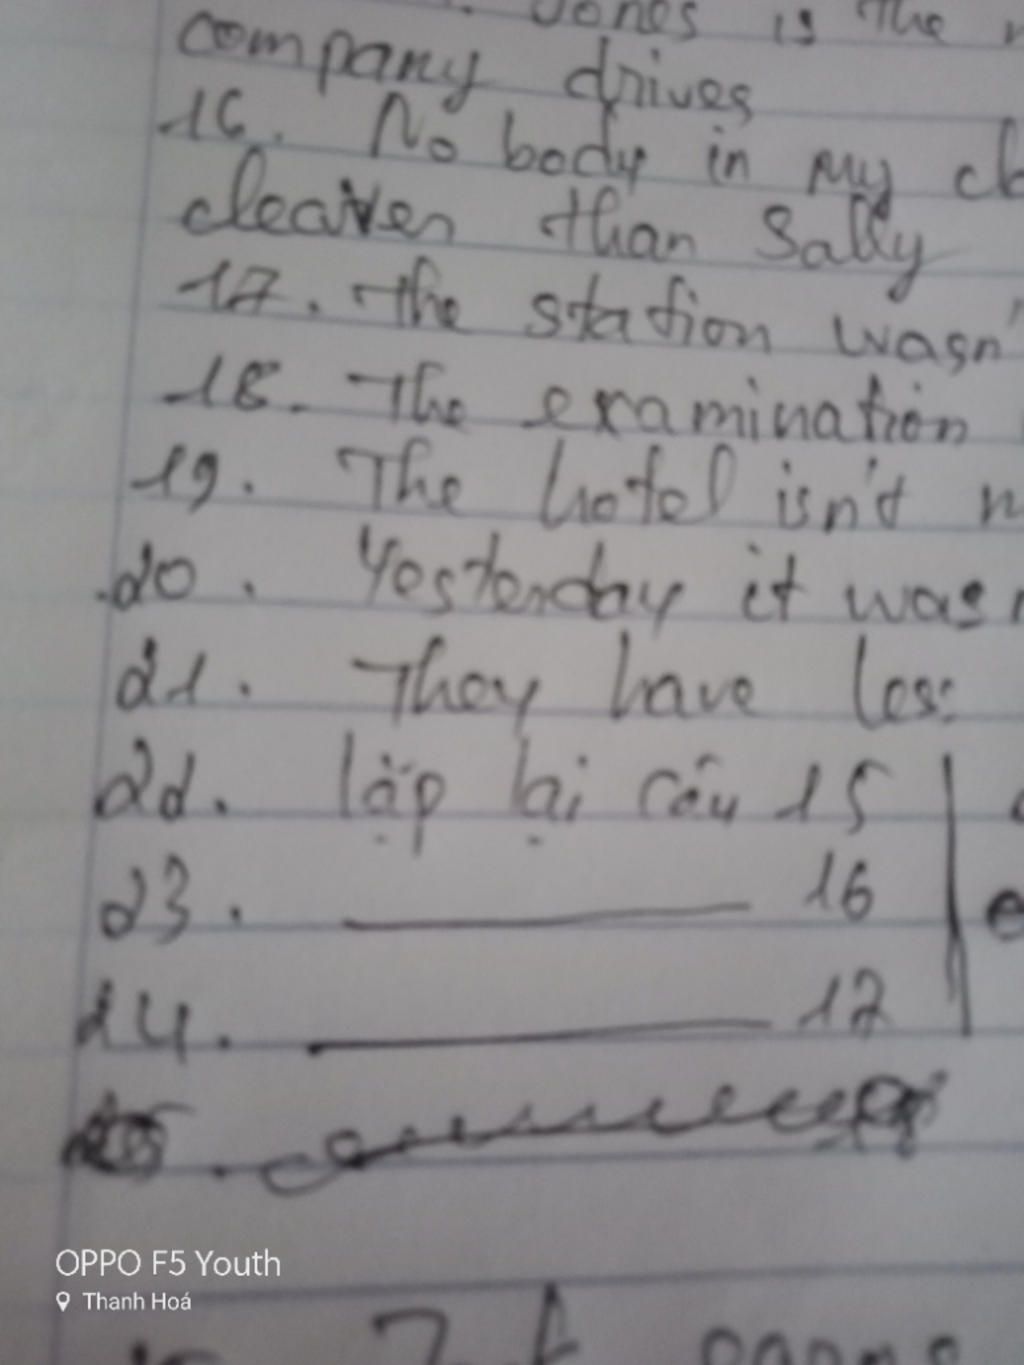 Jones is the
company drives
16. No body in my
cleaver than Sally
17. The station wasn'
18. The examination
19. The hotel isn't
20. Yesterday it was
21. They have les
22. lặp lại câu 15
23. ——— 16
24. ——— 17
OPPO F5 Youth
Thanh Hoá